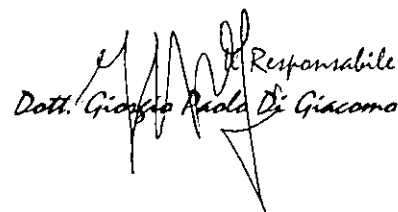 Il Responsabile
Dott. Giorgio Paolo Di Giacomo